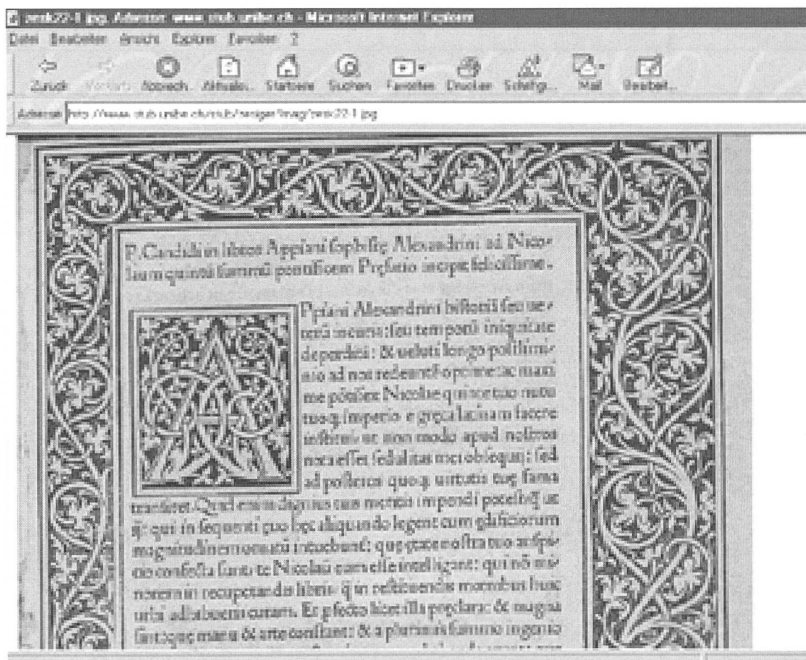 zesk22-1.jpg, Adresse: www.stub.unibe.ch - Microsoft Internet Explorer
Datei Bearbeiten Ansicht Explorer Favoriten ?
Zurück Vorwärts Abbrech... Aktualisi... Startseite Suchen Favoriten Drucken Schriftgr... Mail Bearbeit...
Adresse http://www.stub.unibe.ch/stub/
P. Candidi in libros Appiani sophistę Alexandrini ad Nico-
laum quintū summū pontificem Pręfatio incipit felicissime.
Ppiani Alexandrini historiā seu ue-
incuria: seu temporū iniquitate
deperditā: & ueluti longo postlimi-
nio ad nos
me pōtifex Nicolae quinte tuo nutu
tuoq; imperio e gręca latinam facere
institui: ut non modo apud nostros
nota esset sedulitas mei obsequii: sed
ad posteros quoq; uirtutis tuę fama
transiret. Quid enim dignius tuis meritis impendi
qui in sequenti ęuo hęc aliquando legent cum ędificiorum
magnitudinem
confecta sunt: te Nicolaū eum esse intelligant: qui nō mi-
norem in recuperandis libris: in restituendis moenibus huic
urbi adhibueris curam. Et liber ille preclara: & magna
manu & arte constant: & a plurimis summo ingenio